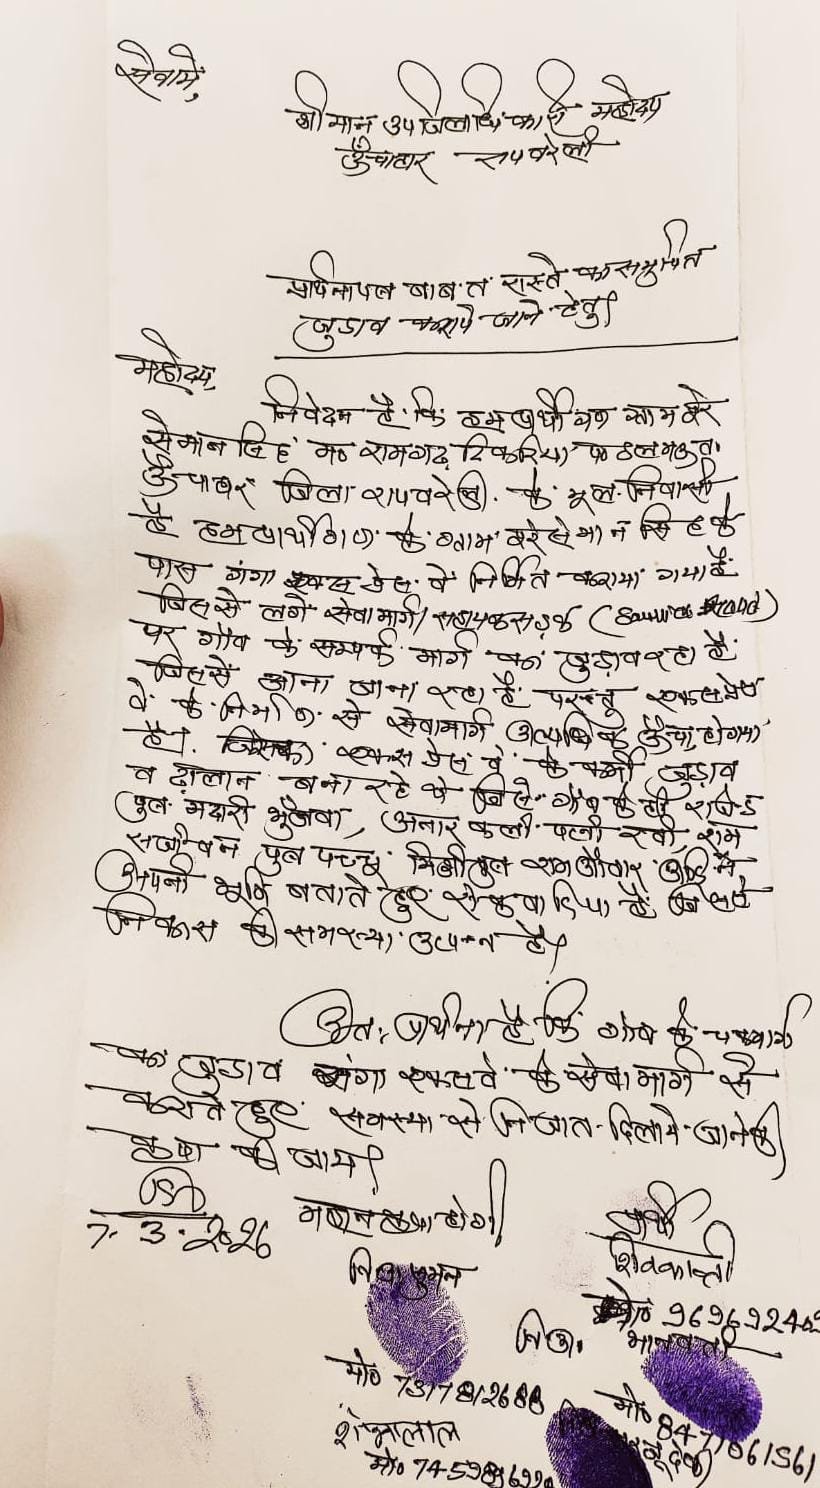 सेवामें,
श्रीमान उपजिलाधिकारी महोदय
ऊँचाहार रायबरेली
प्रार्थनापत्र बाबत रास्ते का समुचित
जुडाव कराये जाने हेतु।
महोदय,
निवेदन है कि हम प्रार्थी गण ग्राम बरे
सेमान सिंह म० रामगढ़ टिकरिया प० दलमऊ त०
ऊँचाहार जिला रायबरेली के मूल निवासी
है हम प्रार्थीगण के ग्राम बरे सेमान सिंह के
पास गंगा एक्सप्रेस वे निर्मित कराया गया है
जिससे लगे सेवामार्ग/सहायक सड़क (Service Road)
पर गाँव के सम्पर्क मार्ग का जुड़ाव रहा है
जिससे आना जाना रहा है परन्तु एक्सप्रेस
वे के निर्माण से सेवामार्ग अत्यधिक ऊँचा होगया
है। जिसका एक्सप्रेस वे के कर्मी जुड़ाव
व ढ़ालान बना रहे थे जिसे गाँव के ही
पुत्र मदारी भुँजवा, अनार कली पत्नी स्व० राम
सजीवन पुत्र पच्चू मिश्रीलाल राम औतार आदि ने
अपनी भूमि बताते हुए रोकवा दिया है जिससे
निकास की समस्या उत्पन्न है।
अतः प्रार्थना है कि गाँव के चकमार्ग
का जुडाव गंगा एक्सवे के सेवा मार्ग से
कराते हुए समस्या से निजात दिलाये जाने की
कृपा की जाय।
7.3.2026
महान कृपा होगी
प्रार्थी
शिवकान्ती
नि०
मो० 96969240
नि०अ० भानवती
मो० 7317812688
मो० 8471061561
मो० 74-5
देवी